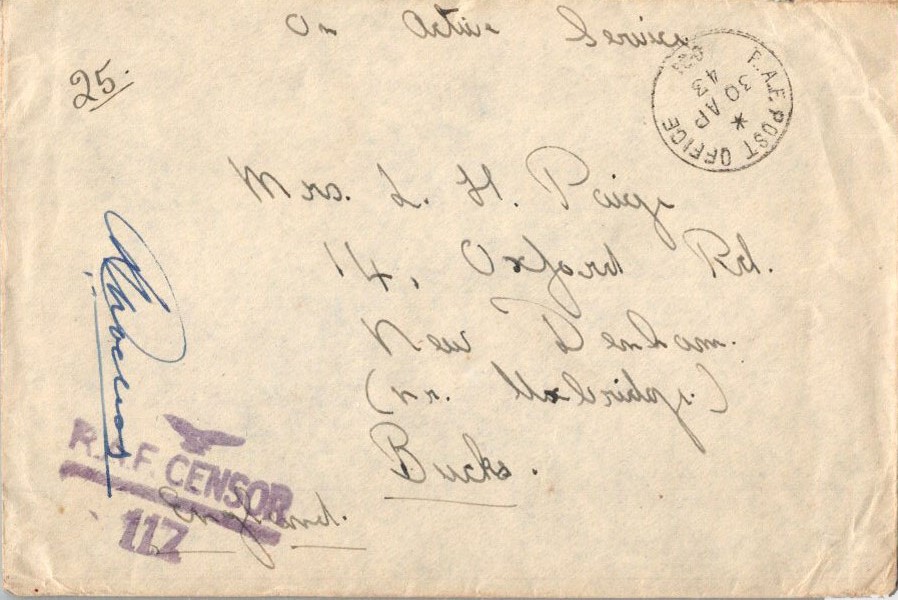 On Active Service
25.
R.A.F. POST OFFICE
30 AP
43
Mrs. L. H. Paige
14, Oxford Rd.
New Denham.
(nr. Uxbridge)
Bucks.
England.
R.A.F. CENSOR
117